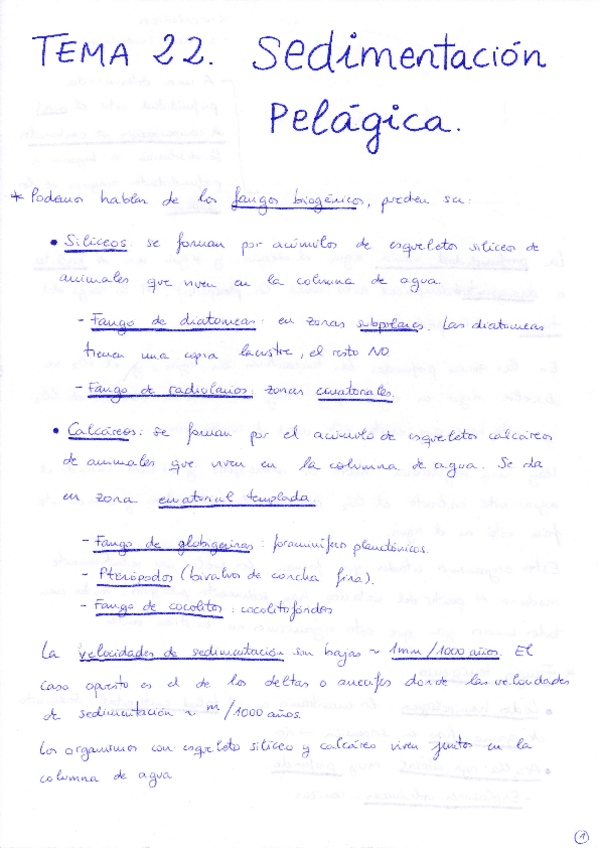 TEMA 22. Sedimentación
Pelágica.
* Podemos hablar de los fangos biogénicos, pueden ser:
• Silíceos: se forman por acúmulos de esqueletos silíceos de
animales que viven en la columna de agua.
- Fango de diatomeas: en zonas subpolares. Las diatomeas
tienen una copia lacustre, el resto NO
- Fango de radiolarios: zonas ecuatoriales.
• Calcáreos: se forman por el acúmulo de esqueletos calcáreos
de animales que viven en la columna de agua. Se da
en zona ecuatorial templada
- Fango de globigerinas: foraminíferos planctónicos.
- Pterópodos (bivalvos de concha fina).
- Fango de cocolitos: cocolitofóridos
La velocidades de sedimentación son bajas ≈ 1mm/1000 años. El
caso opuesto es el de los deltas o arrecifes donde las velocidades
de sedimentación ≈ m/1000 años.
Los organismos con esqueleto silíceo y calcáreo viven juntos en la
columna de agua
1